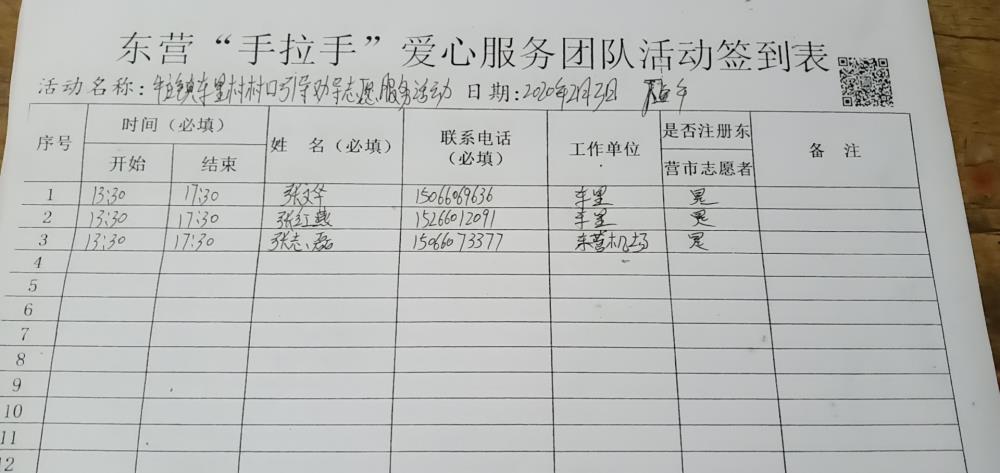 东营“手拉手”爱心服务团队活动签到表
活动名称：牛庄镇车里村村口引导劝导志愿服务活动 日期：2020年2月3日 下午
序号 时间（必填） 姓 名（必填） 联系电话（必填） 工作单位 是否注册东营市志愿者 备 注
开始 结束
1 13:30 17:30 张文华 15066069636 车里 是
2 13:30 17:30 张红燕 15266012091 车里 是
3 13:30 17:30 张志磊 15066073377 东营机场 是
4
5
6
7
8
9
10
11
12